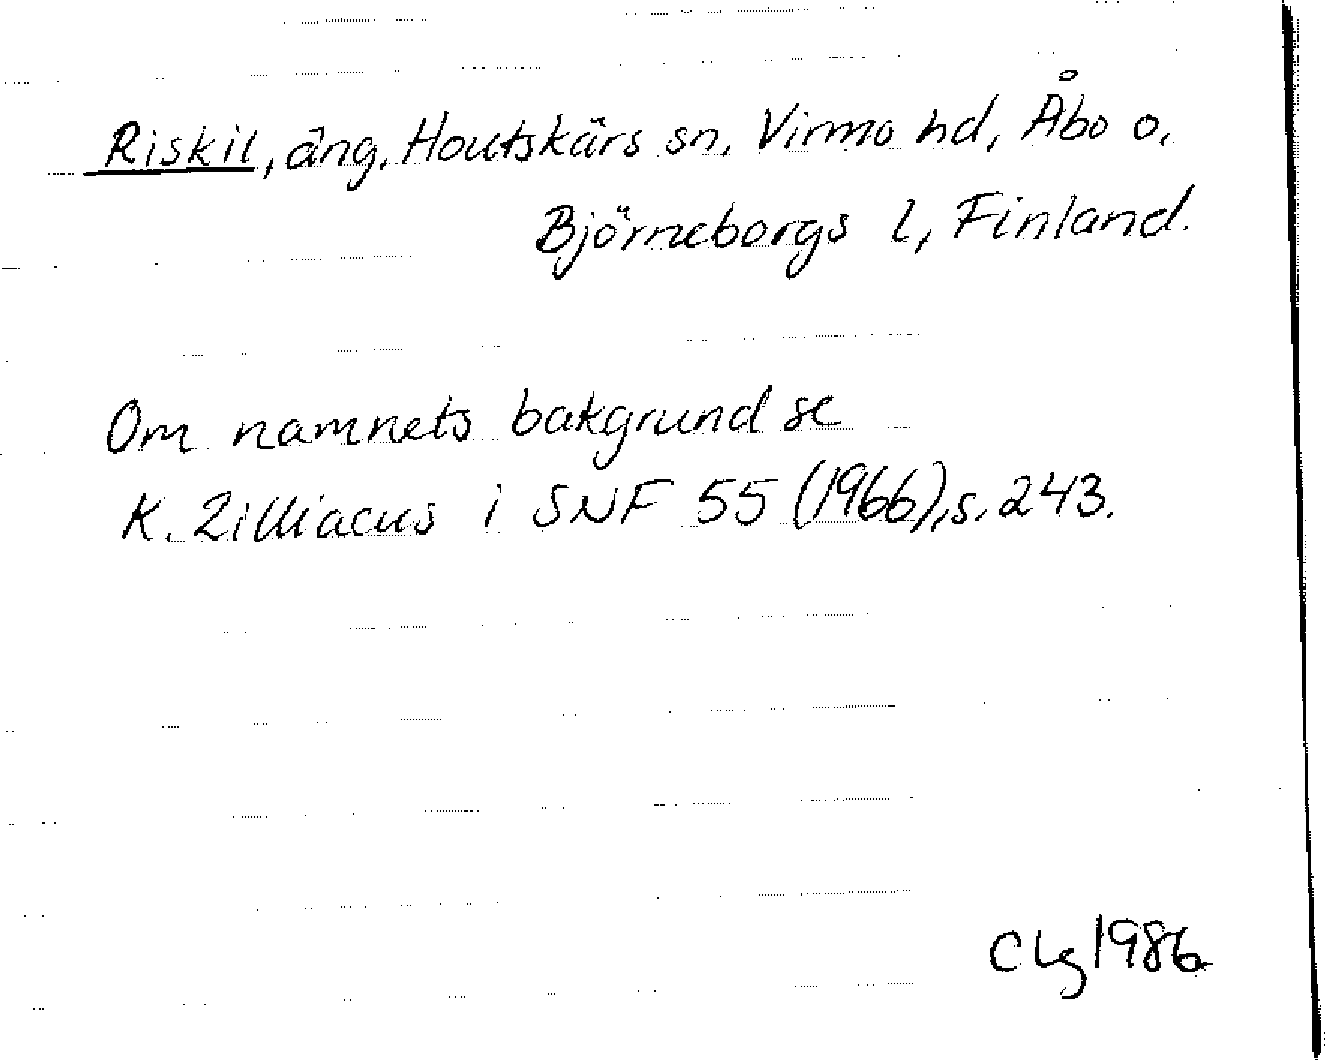 Riskil, äng, Houtskärs sn, Virmo hd, Åbo o.
Björneborgs l, Finland.
Om namnets bakgrund se
K. Zilliacus i SNF 55 (1966), s. 243.
CLg 1986